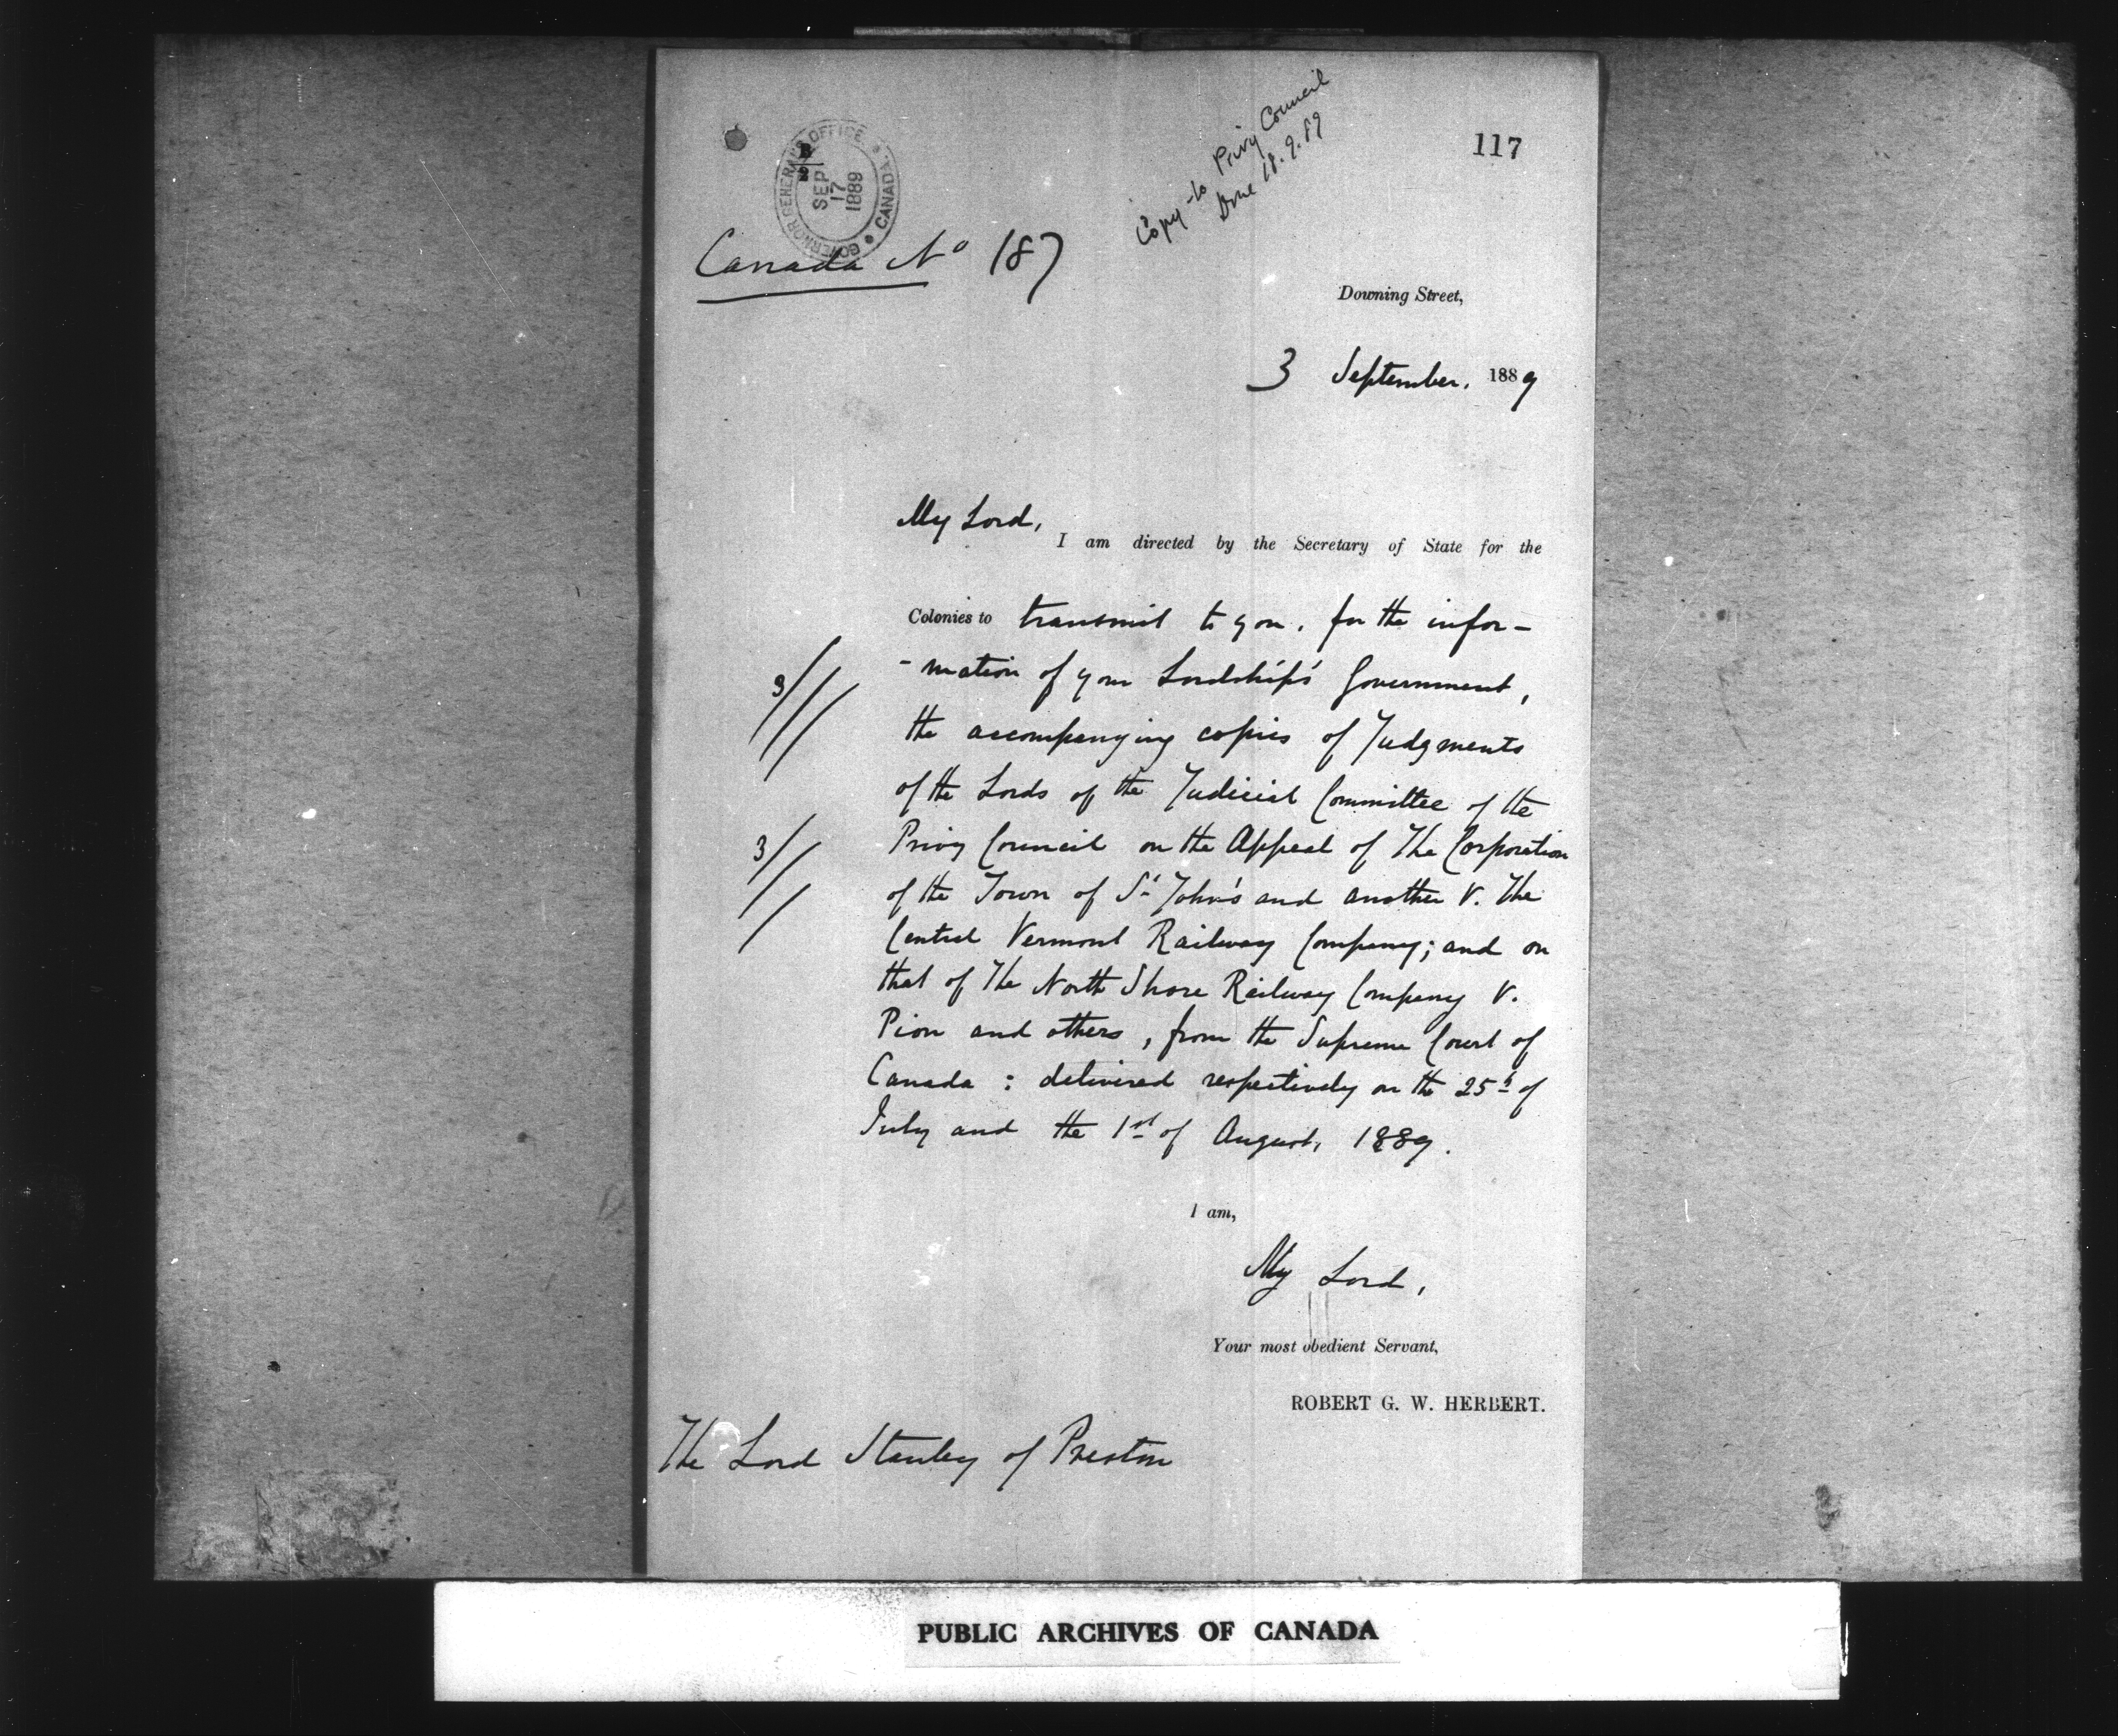 Copy to Privy Council
Done 18.9.89
117
GOVERNOR GENERAL'S OFFICE
CANADA
SEP
17
1889
Canada No 187
Downing Street,
3 September, 1889
My Lord,
I am directed by the Secretary of State for the
Colonies to transmit to you, for the infor-
-mation of your Lordship's Government,
3
the accompanying copies of Judgments
of the Lords of the Judicial Committee of the
3
Privy Council on the Appeal of The Corporation
of the Town of St John's and another V. The
Central Vermont Railway Company; and on
that of The North Shore Railway Company V.
Pion and others, from the Supreme Court of
Canada: delivered respectively on the 25th of
July and the 1st of August, 1889.
I am,
My Lord,
Your most obedient Servant,
ROBERT G. W. HERBERT.
The Lord Stanley of Preston
PUBLIC ARCHIVES OF CANADA